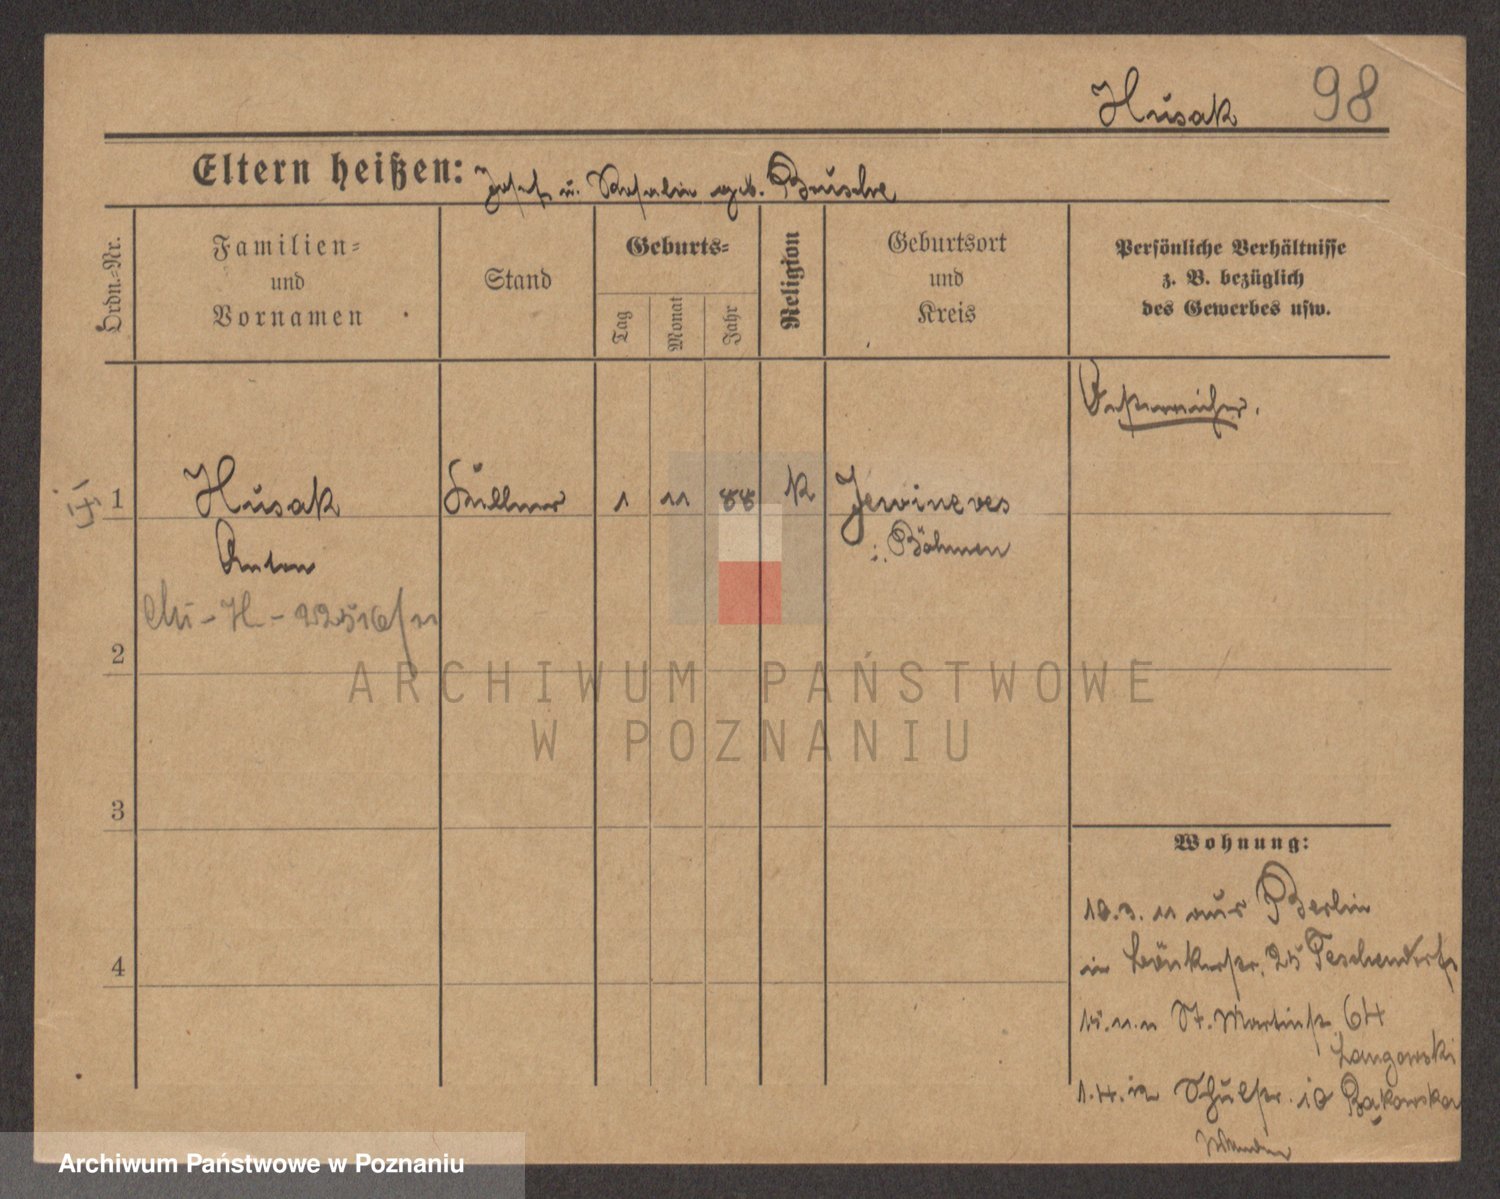 Husak 98
Eltern heißen: Josef u. Rosalie geb. Brusche
Ordn.-Nr.
Familien-
und
Vornamen
Stand
Geburts-
Tag
Monat
Jahr
Religion
Geburtsort
und
Kreis
Persönliche Verhältnisse
z. B. bezüglich
des Gewerbes usw.
Oesterreicher.
1 Husak Kellner 1 11 88 K Jewineves
Anton i. Böhmen
2
3
4
Wohnung:
10.3.11 aus Berlin
in 25 Teschendorf
St. Martinstr. 64
Langowski
1.4.12 Schulstr. 10 Bąkowska
ARCHIWUM PAŃSTWOWE
W POZNANIU
Archiwum Państwowe w Poznaniu